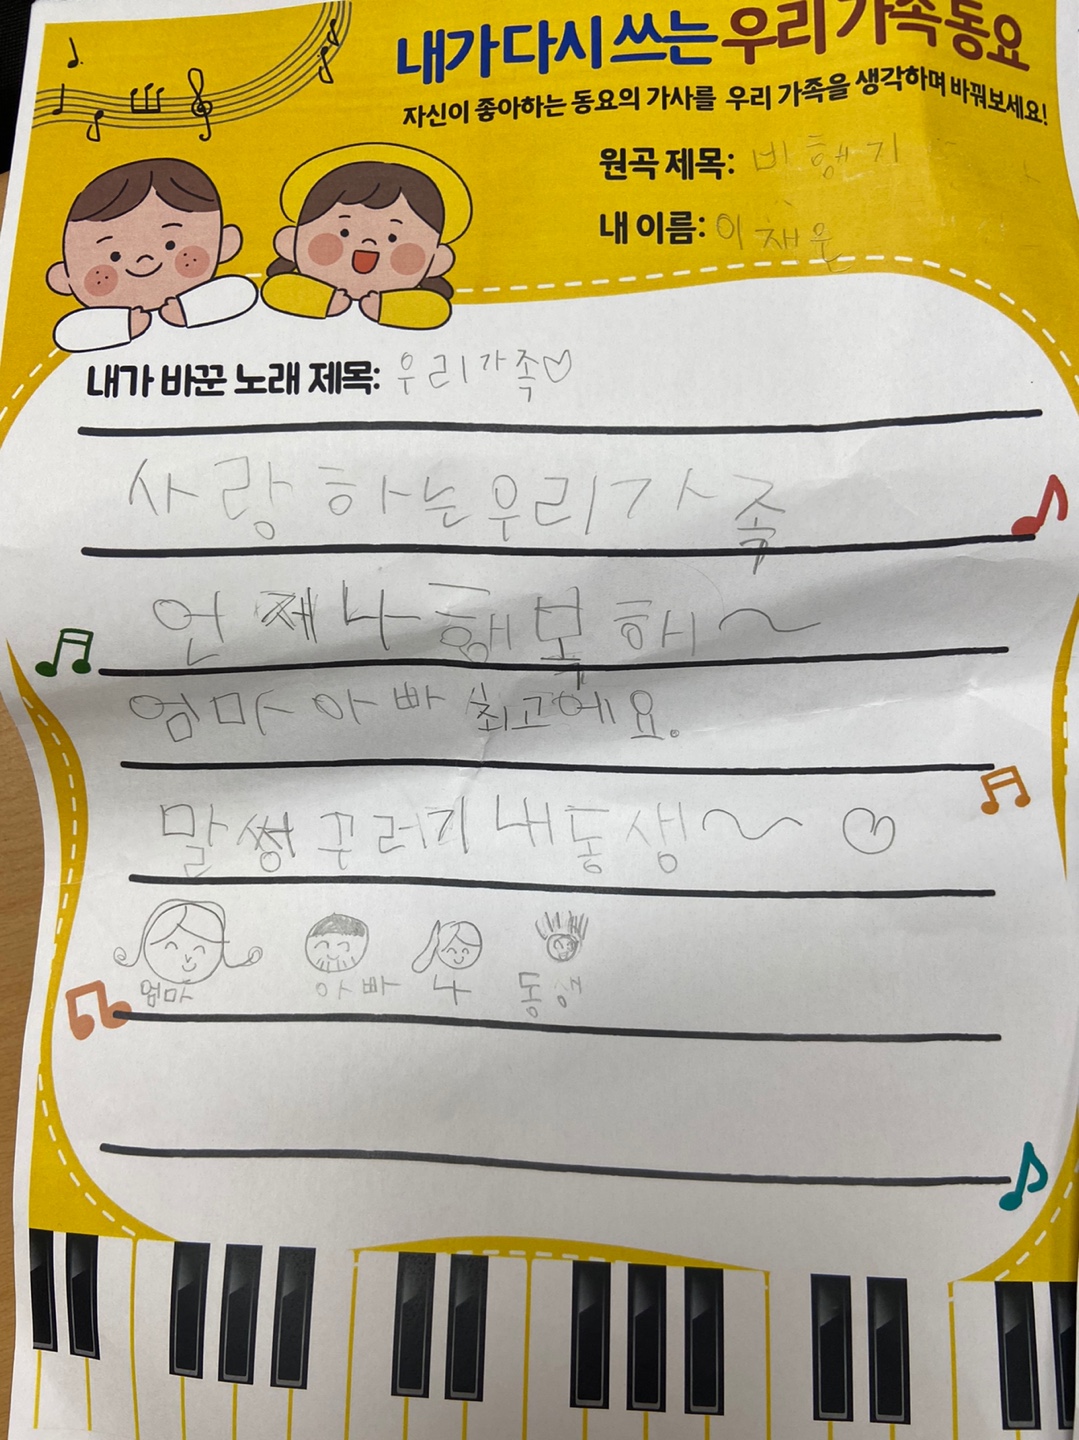 내가 다시 쓰는 우리 가족 동요
자신이 좋아하는 동요의 가사를 우리 가족을 생각하며 바꿔보세요!
원곡 제목: 비행기
내 이름: 이채운
내가 바꾼 노래 제목: 우리가족♡
사랑하는우리가족
언제나행복해~
엄마아빠최고에요.
말썽꾸러기내동생~ ♡
엄마 아빠 나 동생